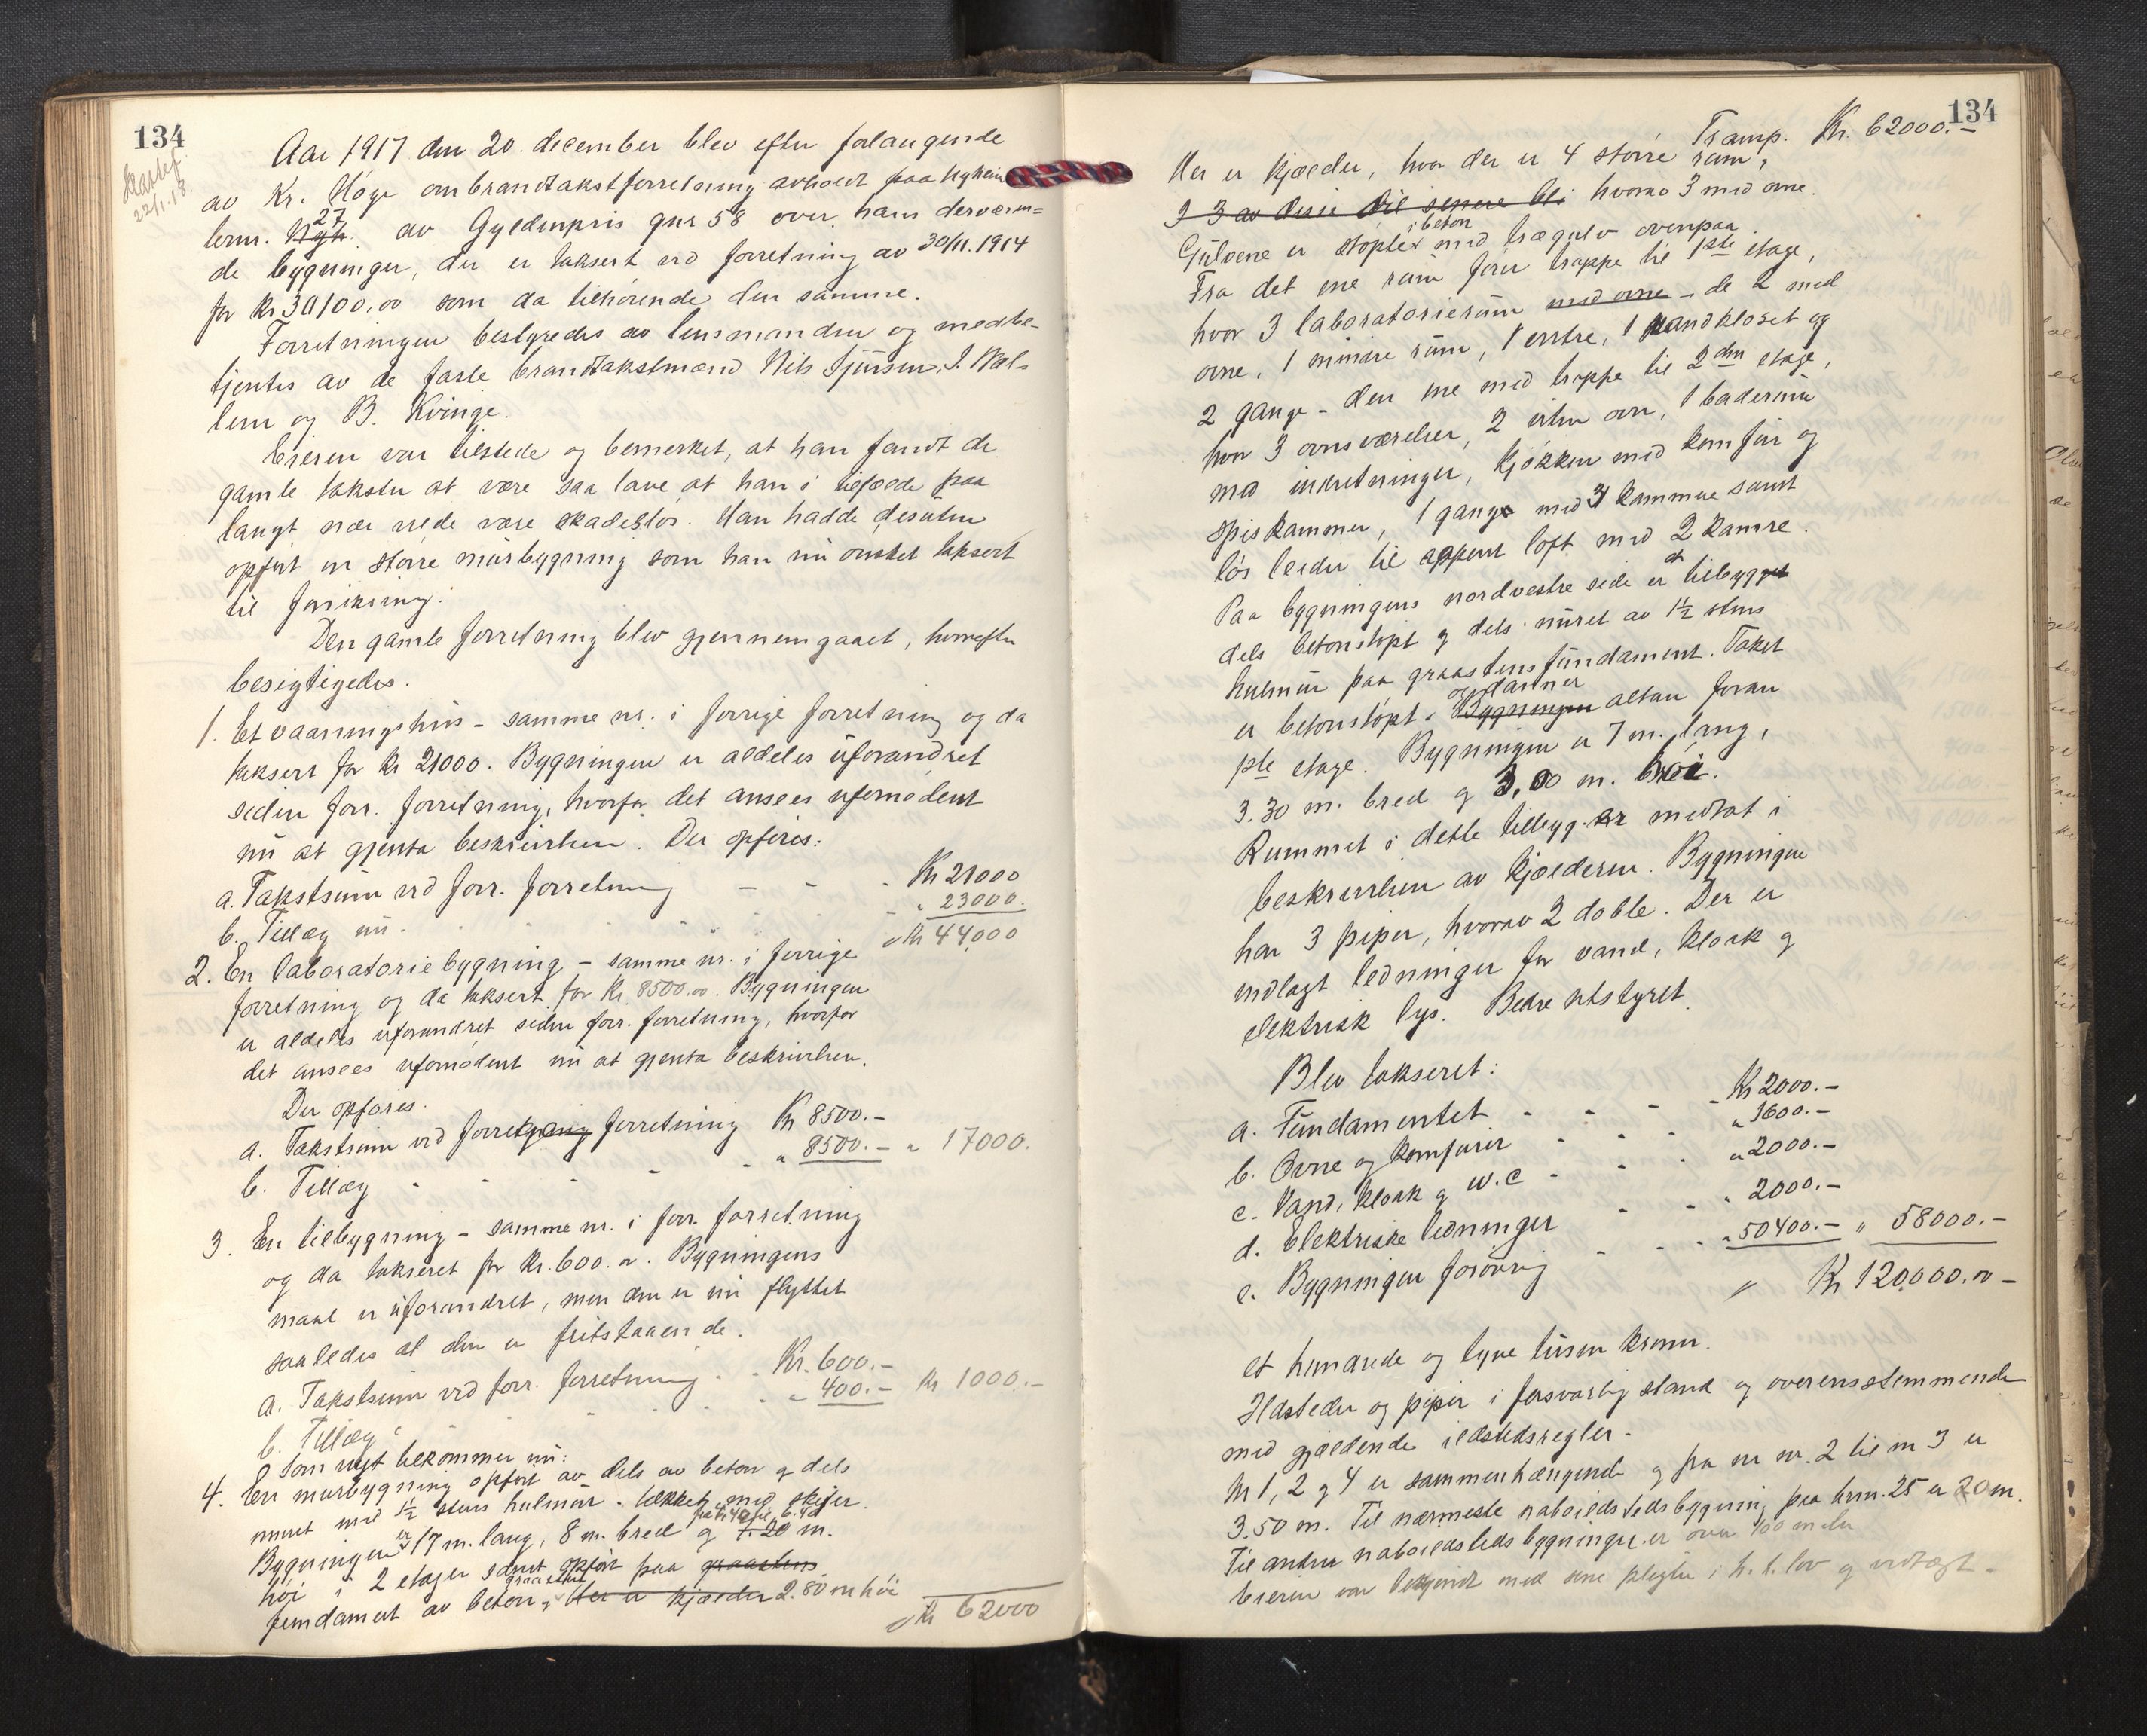 134
22/1.18.
Aar 1917 den 20. december blev efter forlangende
av Kr. Høge om brandtakstforretning avholdt paa Nyheim
brnr. Nyh. 27 av Gyldenpris gnr 58 over hans derværen-
de bygninger, der er taksert ved forretning av 30/11.1914
for kr 30100,00 som da tilhørende den samme.
Forretningen bestyredes av lensmanden og medbe-
tjentes av de faste brandtakstmænd Nils Sjursen, J. Møl-
lern og B. Kvinge.
Eieren var tilstede og bemerket, at han fandt de
gamle takster at være saa lave at han i tilfælde paa
langt nær vilde være skadesløs. Han hadde desuten
opført en større murbygning som han nu ønsket taksert
til forsikring.
Den gamle forretning blev gjennemgaaet, hvorefter
besigtigedes.
1. Et vaaningshus - samme nr. i forrige forretning og da
taksert for kr 21000. Bygningen er aldeles uforandret
siden forr. forretning, hvorfor det ansees ufornødent
nu at gjenta beskrivelsen. Der opføres:
a. Takstsum ved forr. forretning - - - Kr 21000
b. Tillæg nu - - - - - " 23000.
Kr 44,000
2. En laboratoriebygning - samme nr. i forrige
forretning og da taksert for Kr. 8500.00. Bygningen
er aldeles uforandret siden forr. forretning, hvorfor
det ansees ufornødent nu at gjenta beskrivelsen.
Der opføres.
a. Takstsum ved forretgning forretning Kr 8500.-
b. Tillæg - - - - - " 8500.- " 17000.
3. En tilbygning - samme nr. i forr. forretning
og da takseret for Kr. 600.00. Bygningens
maal er uforandret, men den er nu flyttet
saaledes at den er fritstaaende.
a. Takstsum ved forr. forretning - - Kr. 600.-
b. Tillæg - - - - " 400.- Kr 1000.-
Som nyt tilkommer nu:
4. En murbygning opført av dels av beton g dels
muret med 1½ stens hulmur - tækket med skifer.
Bygningen er 17 m. lang, 8 m. bred g 7.20 m.
høi i 2 etager samt opført paa graastens
fundament av beton, graasten der er kjælder 2.80 m høi
Kr 62000
134
Transp. Kr. 62000.-
Her er kjælder, hvor der er 4 større rum,
I 3 av disse vil senere bli hvorav 3 med ovne.
Gulvene er støpte i beton med trægulv ovenpaa.
Fra det ene rum fører trappe til 1ste etage,
hvor 3 laboratorierum med ovne - de 2 med
ovne, 1 mindre rum, 1 entre, 1 vandkloset og
2 gange - den ene med trappe til 2den etage,
hvor 3 ovnsværelser, 2 uten ovn, 1 baderum
med indretninger, kjøkken med komfur og
spiskammer, 1 gang med 3 kammere samt
løs leider til aapent loft med 2 kamre.
Paa bygningens nordvestre side er et tilbygget
dels betonstøpt g dels muret av 1½ stens
hulmur paa graastensfundament. Taket
er betonstøpt. Bygningen og danner altan foran
1ste etage. Bygningen er 7 m. lang,
3.30 m. bred g 3,00 m. høi.
Rummet i dette tilbyg. er medtat i
beskrivelsen av kjælderen. Bygningen
har 3 piper, hvorav 2 doble. Der er
indlagt ledninger for vand, kloak g
elektrisk lys. Bedre utstyret.
Blev takseret:
a. Fundamentet - - - - Kr 2000.-
b. Ovne og komfurer - - - " 1600.-
c. Vand, kloak g w.c - - - " 2000.-
d. Elektriske ledninger - - " 2000.-
e. Bygningen forøvrig - - - " 50400.- " 58000.-
Kr 120,000.00 -
et hundrede og tyve tusen kroner.
Ildsteder og piper i forsvarlig stand og overensstemmende
med gjældende ildstedsregler.
Nr 1, 2 g 4 er sammenhængende g fra nr. 2 til nr 3 er
3.50 m. Til nærmeste naboildstedsbygning paa brnr. 25 er 20 m.
Til andre naboildstedsbygninger er over 100 meter
Eieren var bekjendt med sine pligter i h. t. lov g vedtægt.